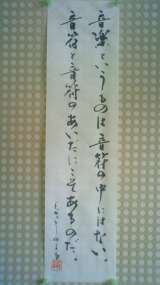 音楽というものは音符の中にはない、
音符と音符のあいだにこそあるのだ。